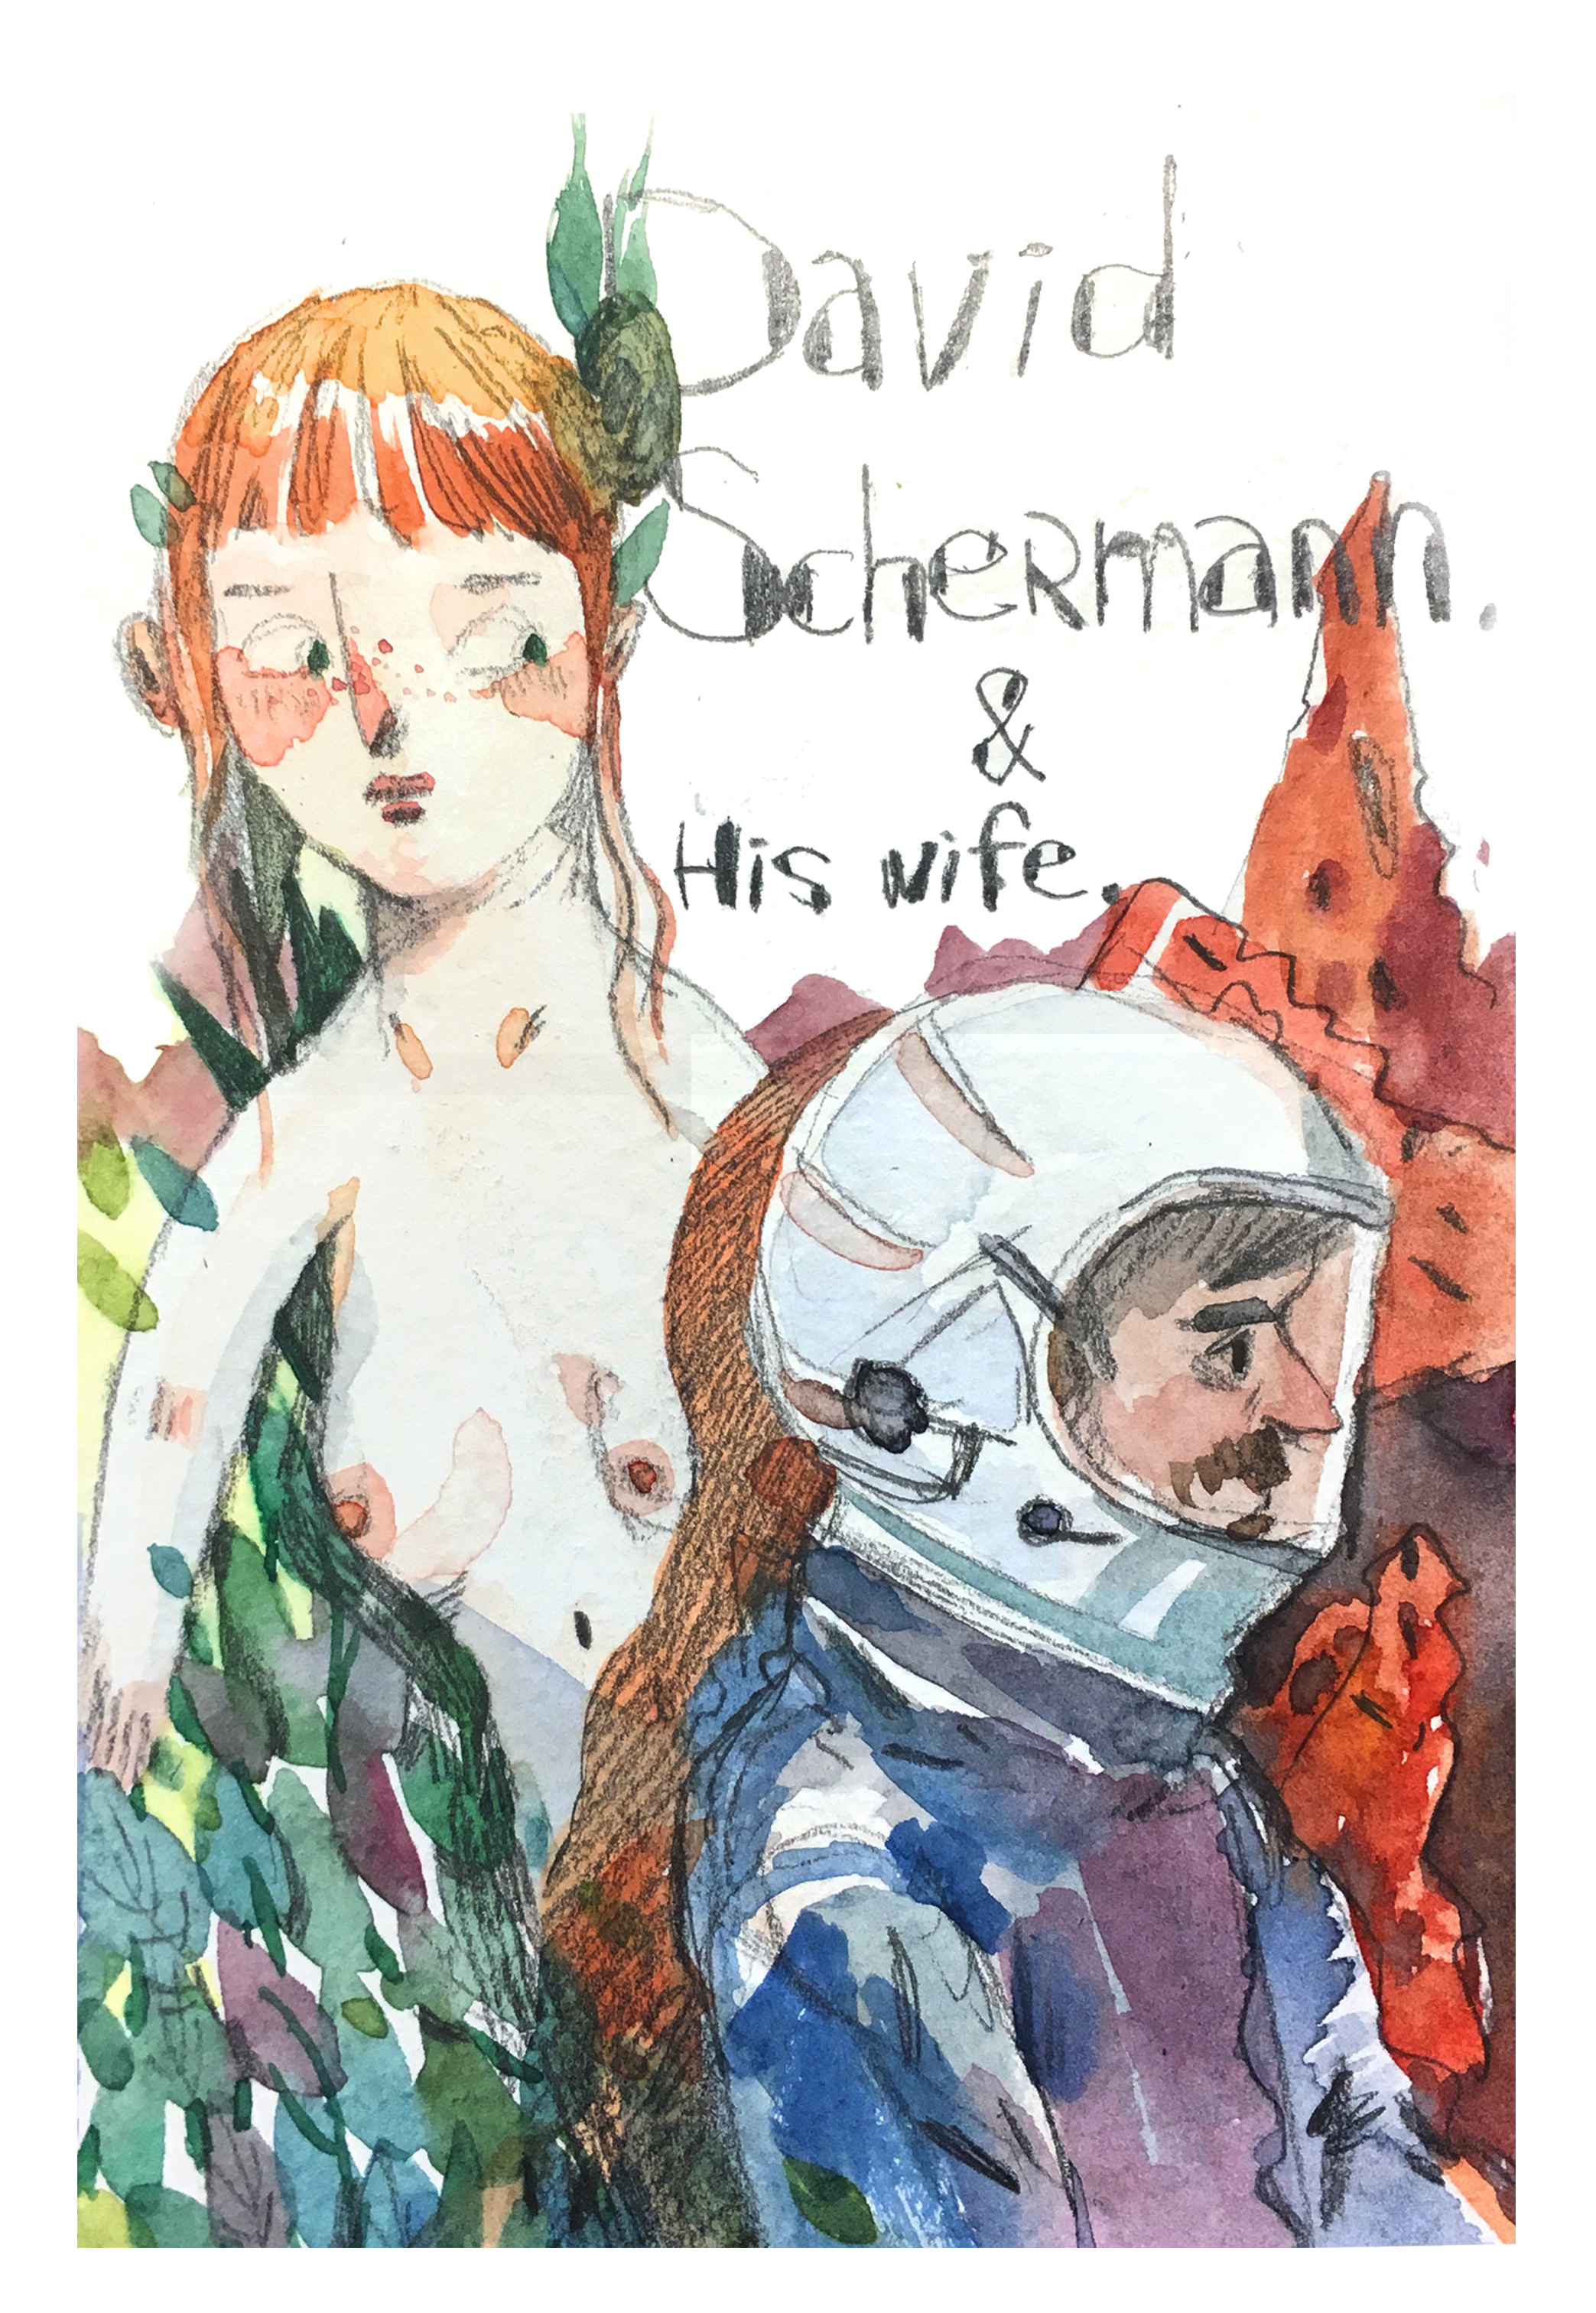 David
Schermann.
&
His wife.